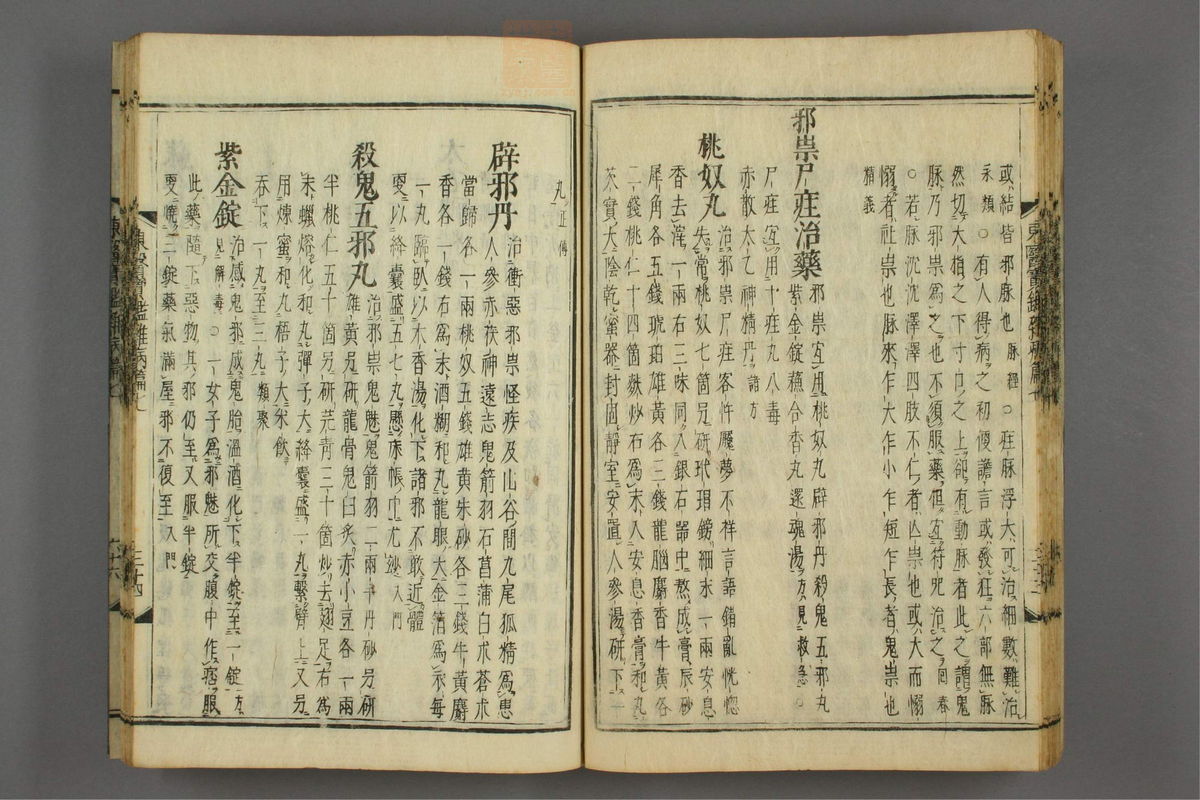 或結皆邪脉也脉經○疰脉浮大可治細數難治
永類○有人得病之初便譫言或發狂六部無脉
然切大指之下寸口之上却有動脉者此之謂鬼
脉乃邪祟爲之也不須服藥但宜符咒治之回春
○若脉沈沈澤澤四肢不仁者亾祟也或大而愵
愵者社祟也脉來乍大乍小乍短乍長者鬼祟也
精義
邪祟尸疰治藥
邪祟宜用桃奴丸辟邪丹殺鬼五邪丸
紫金錠蘓合香丸還魂湯方見救急○
尸疰宜用十疰丸八毒
赤散太乙神精丹諸方
桃奴丸
治邪祟尸疰客忤魘夢不祥言語錯亂恍惚
失常桃奴七箇另研玳瑁鎊細末一兩安息
香去滓一兩右三味同入銀石器中熬成膏辰砂
犀角各五錢琥珀雄黃各三錢龍腦麝香牛黃各
二錢桃仁十四箇麩炒右爲末入安息香膏和丸
芡實大陰乾蜜器封固靜室安置人參湯研下一
丸正傳
辟邪丹
治衝惡邪祟怪疾及山谷間九尾狐精爲患
人參赤茯神遠志鬼箭羽石菖蒲白朮蒼朮
當歸各一兩桃奴五錢雄黃朱砂各三錢牛黃麝
香各一錢右爲末酒糊和丸龍眼大金箔爲衣每
一丸臨臥以木香湯化下諸邪不敢近體
更以絳囊盛五七丸懸床帳中尤妙入門
殺鬼五邪丸
治邪祟鬼魅鬼箭羽二兩半丹砂另研
雄黃另研龍骨鬼臼炙赤小豆各一兩
半桃仁五十箇另研芫靑三十箇炒去翅足右爲
末蠟熔化和丸彈子大絳囊盛一丸繫臂上又另
用煉蜜和丸梧子大米飮
呑下一丸至三丸類聚
紫金錠
治感鬼邪感鬼胎溫酒化下半錠至一錠方
見解毒○一女子爲邪魅所交腹中作痞服
此藥隨下惡物其邪仍至又服半錠
更燒二三錠藥氣滿屋邪不復至入門